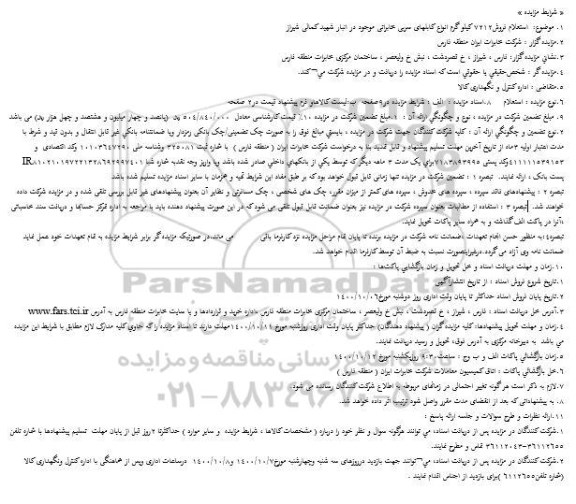 « شرایط مزایده »
۱. موضوع: استعلام فروش ۷۲۱۲ کیلو گرم انواع کابلهای سربی مخابراتی موجود در انبار شهید کمالی شیراز
۲.مزایده گزار : شرکت مخابرات ایران منطقه فارس
۳.نشانی مزایده گزار: فارس ، شیراز ، خ قصردشت ، نبش خ ولیعصر ، ساختمان مرکزی مخابرات منطقه فارس
۴.مزایده گر : شخص حقیقی یا حقوقی است که اسناد مزایده را دریافت و در مزایده شرکت می کند.
۵.متقاضی : اداره کنترل و نگهداری کالا
۶.نوع مزایده : استعلام ۸.اسناد مزایده : الف : شرایط مزایده در صفحه ب:لیست کالاها و فرم پیشنهاد قیمت در ۲ صفحه
۹. مبلغ تضمین شرکت در مزایده ، نوع و چگونگی ارائه آن : ۱.مبلغ تضمین شرکت در مزایده ۱۰٪ قیمت کارشناسی معادل ۵۰۴/۸۴۰/۰۰۰ ریال (پانصد و چهار میلیون و هشتصد و چهل هزار ریال) می باشد
۲.نوع تضمین و چگونگی ارائه آن : کلیه شرکت کنندگان جهت شرکت در مزایده ، بایستی مبالغ فوق را به صورت چک تضمینی/چک بانکی رمزدار ویا ضمانتنامه بانکی غیر قابل انتقال و بدون قید و شرط با
مدت اعتبار اولیه ۳ماه از تاریخ آخرین مهلت تسلیم پیشنهاد و قابل تمدید بنا به درخواست شرکت مخابرات ایران ( منطقه فارس ) با شماره ثبت ۳۲۵۰۸۱ وشناسه ملی ۱۰۱۰۳۶۴۷۲۹۰ وکد اقتصادی
۴۱۱۱۱۱۵۳۹۱۵۳ وکد پستی ۷۱۸۳۸۹۳۹۹۵ برای یک مدت ۳ ماهه دیگر که توسط یکی از بانکهای داخلی صادر شده باشد ویا واریز وجه نقد به شماره شبا
پست بانک ، ارائه نمایند. تبصره ۱ : تضمین شرکت در مزایده تنها زمانی قابل قبول خواهد بود که بر طبق مفاد این شرایط تهیه و همزمان با سایر اسناد مزایده تسلیم شده باشد.
تبصره ۲ : پیشنهادهای فاقد سپرده ، سپرده های مخدوش ، سپرده های کمتر از میزان مقرر، چک های شخصی ، چک مسافرتی و نظایر آن بعنوان پیشنهادهای غیر قابل بررسی تلقی شده و در مزایده شرکت داده
نخواهند شد. تبصره ۳ : استفاده از مطالبات بعنوان سپرده شرکت در مزایده نیز بعنوان ضمانت قابل قبول تلقی می شود که در این صورت پیشنهاد دهنده باید با مراجعه به اداره تمرکز حسابها و دریافت سند حسابداتی
،آنرا در پاکت الف گذاشته و به همراه سایر پاکات تحویل نماید.
تبصره۴ :به منظور حسن انجام تعهدات ،ضمانت نامه شرکت در مزایده برنده تا پایان تمام مراحل مزایده نزد کارفرما باقی می ماند.در صورتیکه مزایده گر برابر شرایط مزایده به تمام تعهدات خود عمل نماید
ضمانت نامه وی آزاد می گردد.درغیراینصورت نسبت به ضبط آن توسط کارفرما اقدام خواهد شد.
۱۰.زمان و مهلت دریافت اسناد و محل تحویل و زمان بازگشایی پاکت ها :
۱.تاریخ شروع فروش اسناد : از تاریخ انتشارآگهی
۲.تاریخ پایان فروش اسناد حداکثر تا پایان وقت اداری روز دوشنبه مورخ ۱۴۰۰/۱۰/۰۶
۳.آدرس محل دریافت اسناد : فارس ، شیراز ، خ قصردشت ، نبش خ ولیعصر ، ساختمان مرکزی مخابرات منطقه فارس ،اداره خرید و قراردادها و یا سایت مخابرات منطقه فارس به آدرس www.fars.tci.ir
۴.زمان و مهلت تحویل پیشنهادها: کلیه مزایده گران ( پیشنهاد دهندگان) حداکثر پایان وقت اداری روزشنبه مورخ ۱۴۰۰/۱۰/۱۱ مهلت دارند تا اسناد مزایده را که حاوی کلیه مدارک لازم مطابق با شرایط این مزایده
می باشد به دبیرخانه مرکزی به آدرس فوق، تحویل و رسید دریافت نمایند.
۵.زمان بازگشائی پاکات الف و ب وج : ساعت ۹:۳۰ روزیکشنبه مورخ ۱۴۰۰/۱۰/۱۲
۶.محل بازگشائی پاکات : اتاق کمیسیون معاملات شرکت مخابرات ایران ( منطقه فارس )
۷.لازم به ذکر است هر گونه تغییر احتمالی در زمانهای مربوطه به اطلاع شرکت کنندگان رسانده می شود.
۸. به پیشنهاداتی که بعد از انقضای مدت مقرر واصل شود ترتیب اثر داده نخواهد شد.
۱۱.ارائه نظرات و طرح سوالات و جلسه ارائه پاسخ :
۱.شرکت کنندگان در مزایده پس از دریافت اسناد، می توانند هرگونه سوال و نظر خود را درباره ( مشخصات کالاها ، شرایط مزایده و سایر موارد ) حداکثرتا ۲روز قبل از پایان مهلت تسلیم پیشنهادها با شماره تلفن
۳۶۱۱۲۶۵۵-۳۶۱۱۲۰۴۳ تماس و مطرح نمایند.
۲.شرکت کنندگان در مزایده پس از دریافت اسناد، می توانند جهت بازدید درروزهای سه شنبه وچهارشنبه مورخ ۱۴۰۰/۱۰/۷ و ۱۴۰۰/۱۰/۸ درساعات اداری وپس از هماهنگی با اداره کنترل ونگهداری کالا
(شماره تلفن ۶۱۱۲۶۵۵) برای بازدید از اجناس اقدام نمایند .
ParsNamadData
پایگاه اطلاع رسانی مناقصه و مزایده